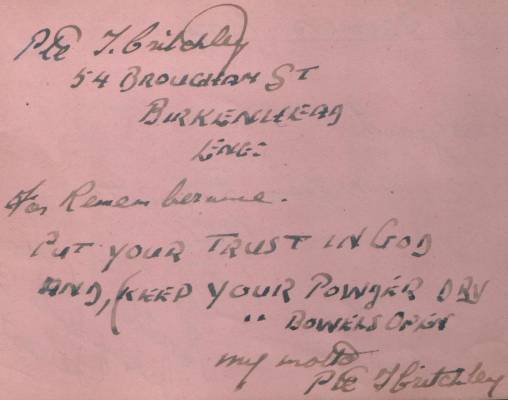 Pte T. Critchley
54 BROUGHAM ST
BIRKENHEAD
ENG:
For Remembernce.
PUT YOUR TRUST IN GOD
AND, (KEEP YOUR POWDER DRY
" BOWELS OPEN
my motto
Pte T Critchley